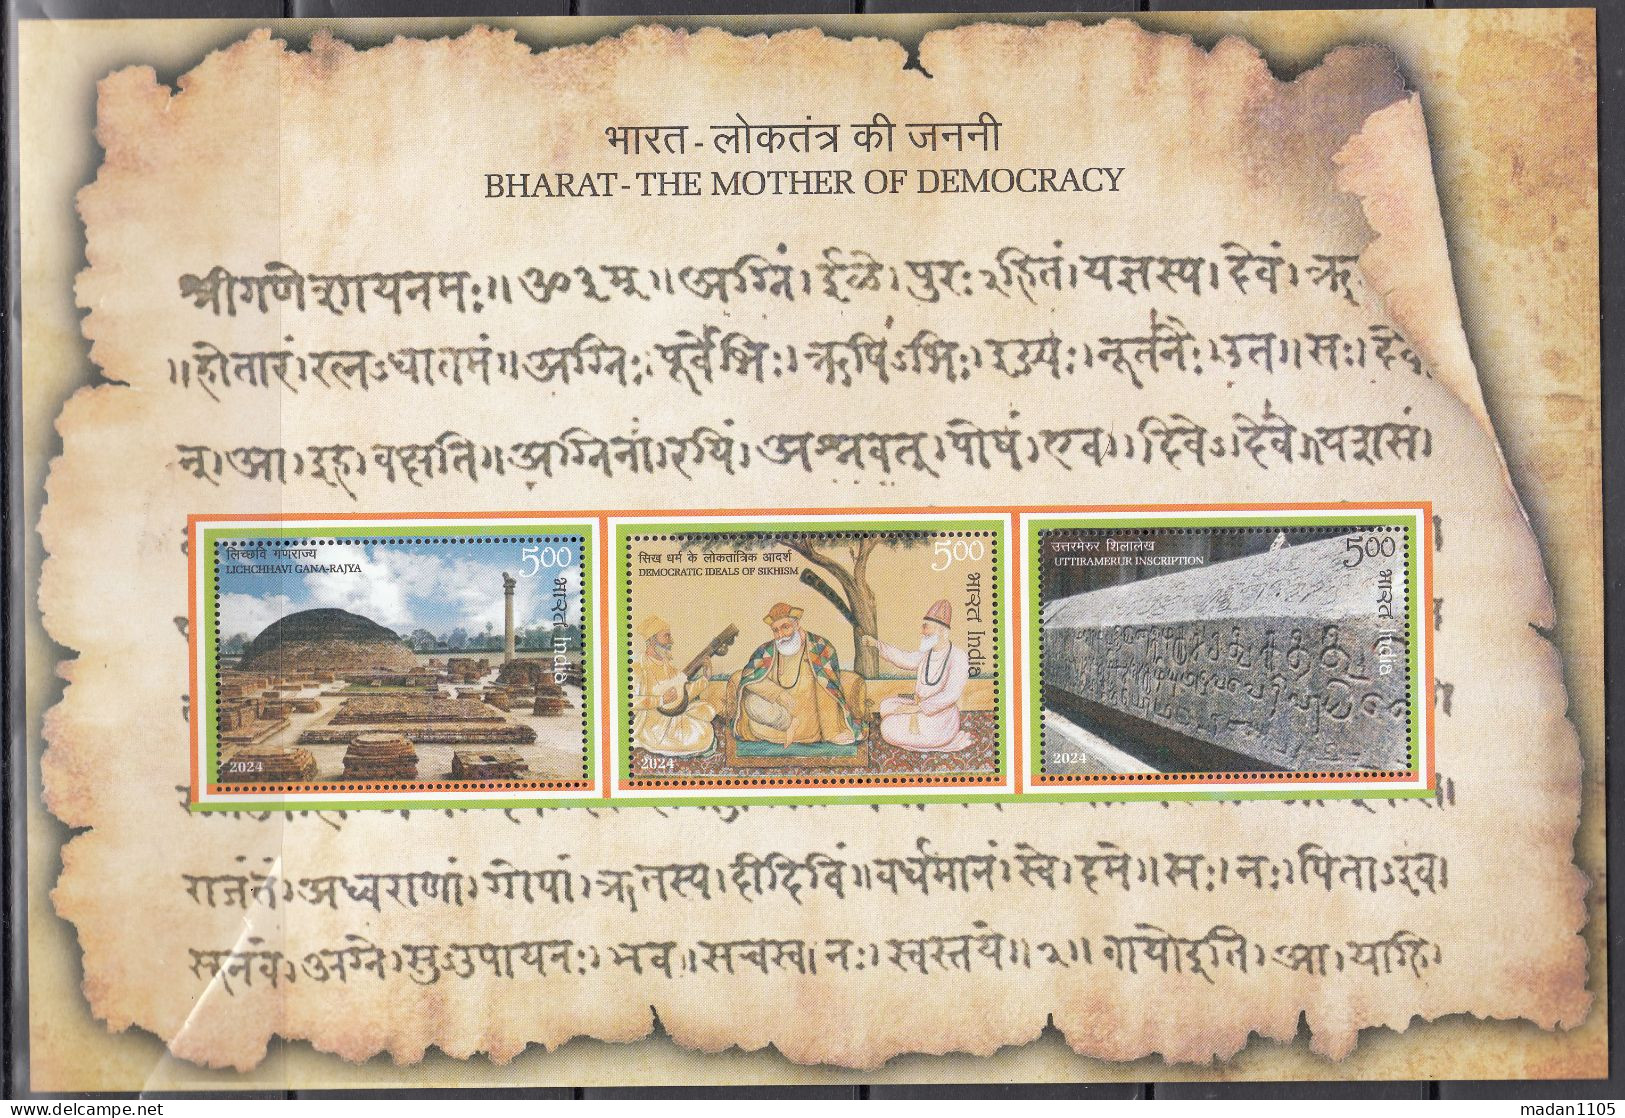 भारत - लोकतंत्र की जननी
BHARAT - THE MOTHER OF DEMOCRACY
श्रीगणेशायनमः॥ॐ३म्॥अग्निं।ईळे।पुरःऽहितं।यज्ञस्य।देवं।ऋ
॥होतारं।रत्नऽधातमं॥अग्निः।पूर्वेभिः।ऋषिऽभिः।ईड्यः।नूतनैः।उत॥सः।देवा
न्।आ।इह।वक्षति॥अग्निना।रयिं।अश्नवत्।पोषं।एव।दिवेऽदिवे॥यशसं।
लिच्छवि गणराज्य
LICHCHHAVI GANA-RAJYA
5.00
भारत India
2024
सिख धर्म के लोकतांत्रिक आदर्श
DEMOCRATIC IDEALS OF SIKHISM
5.00
भारत India
2024
उत्तरमेरुर शिलालेख
UTTIRAMERUR INSCRIPTION
5.00
भारत India
2024
राजंतं।अध्वराणां।गोपां।ऋतस्य।दीदिविं॥वर्धमानं।स्वे।दमे॥सः।नः।पिताऽइव।
सूनवे।अग्ने।सुऽउपायनः।भव॥सचस्व।नः।स्वस्तये॥२॥वायोइति।आ।याहि।
delcampe.net
madan1105